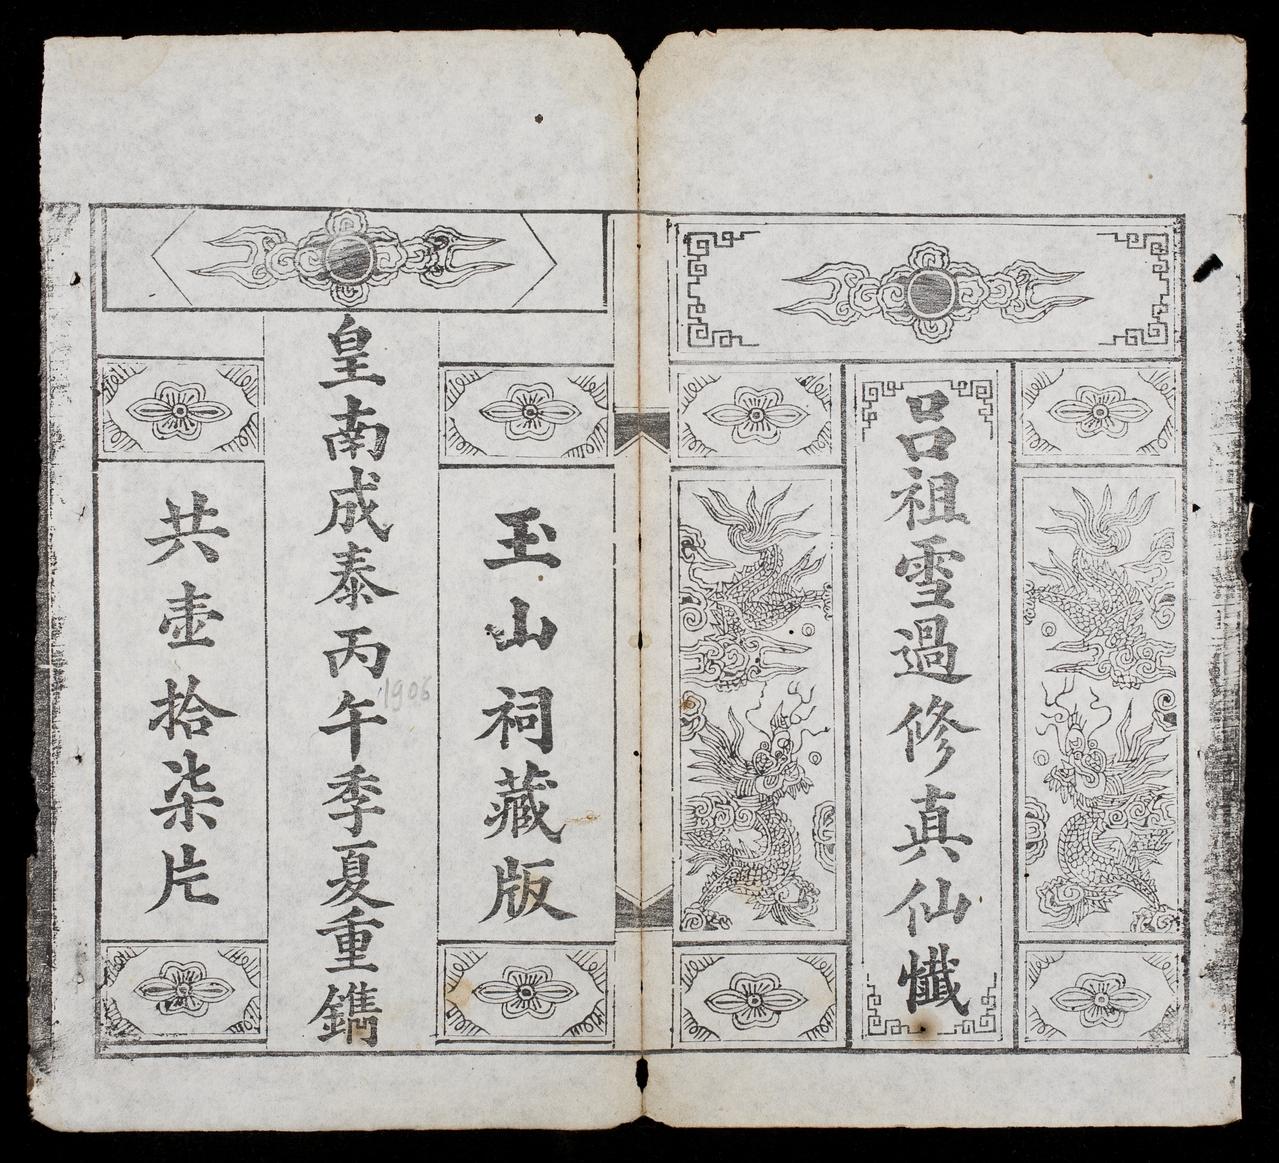 呂祖雪過修真仙懺
玉山祠藏版
皇南成泰丙午季夏重鐫
1906
共壺拾柒片